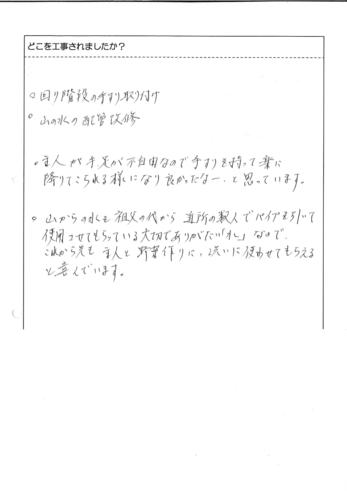 どこを工事されましたか？
○ 回り階段の手すり取り付け
○ 山の水の配管改修
○ 主人が手足が不自由なので手すりを持って楽に
降りてこられる様になり良かったなー、と思っています。
○ 山からの水も祖父の代から近所の数人でパイプを引いて
使用させてもらっている大切でありがたい「水」なので、
これから先も主人と野菜作りに、洗いに使わせてもらえる
と喜んでいます。